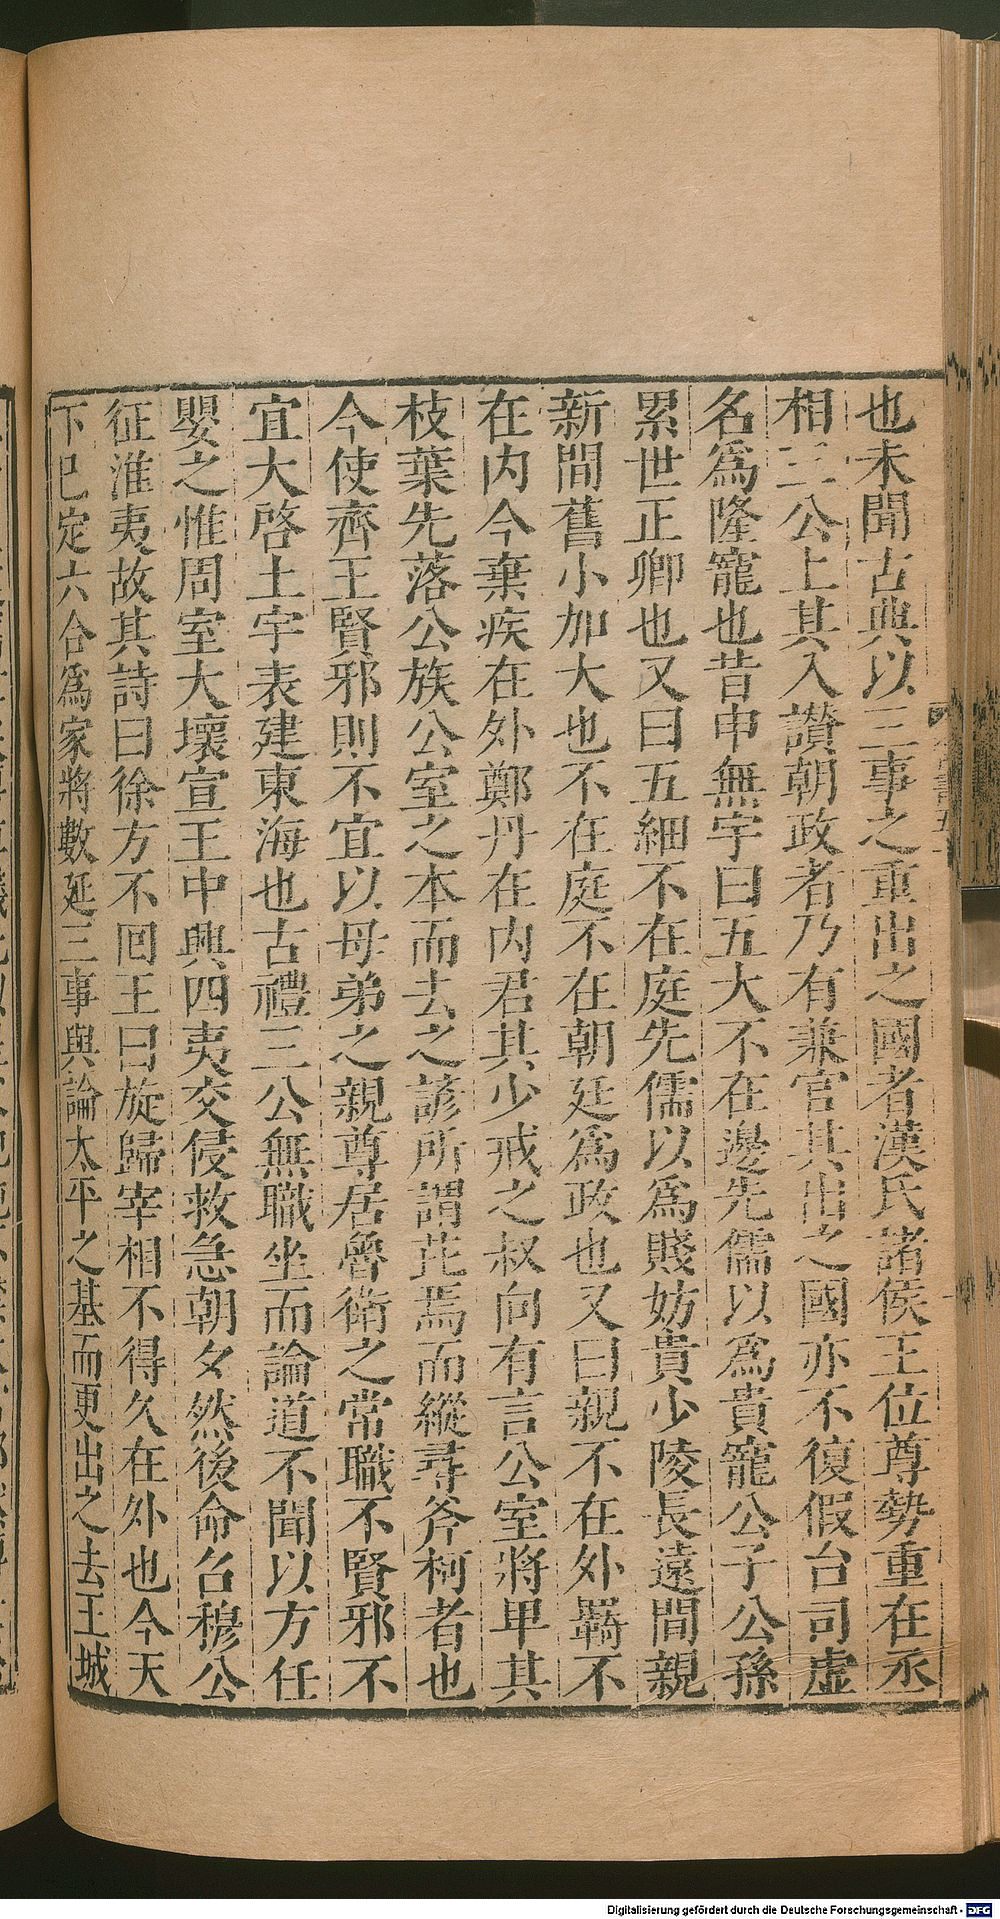 也未聞古典以三事之重出之國者漢氏諸侯王位尊勢重在丞
相三公上其入讃朝政者乃有兼官其出之國亦不復假台司虛
名爲隆寵也昔申無宇曰五大不在邊先儒以爲貴寵公子公孫
累世正卿也又曰五細不在庭先儒以爲賤妨貴少陵長遠間親
新間舊小加大也不在庭不在朝廷爲政也又曰親不在外羇不
在内今棄疾在外鄭丹在内君其少戒之叔向有言公室將卑其
枝葉先落公族公室之本而去之諺所謂芘焉而縱尋斧柯者也
今使齊王賢邪則不宜以母弟之親尊居魯衛之常職不賢邪不
宜大啓土宇表建東海也古禮三公無職坐而論道不聞以方任
嬰之惟周室大壞宣王中興四夷交侵救急朝夕然後命召穆公
征淮夷故其詩曰徐方不回王曰旋歸宰相不得久在外也今天
下已定六合爲家將數延三事與論太平之基而更出之去王城
Digitalisierung gefördert durch die Deutsche Forschungsgemeinschaft - DFG